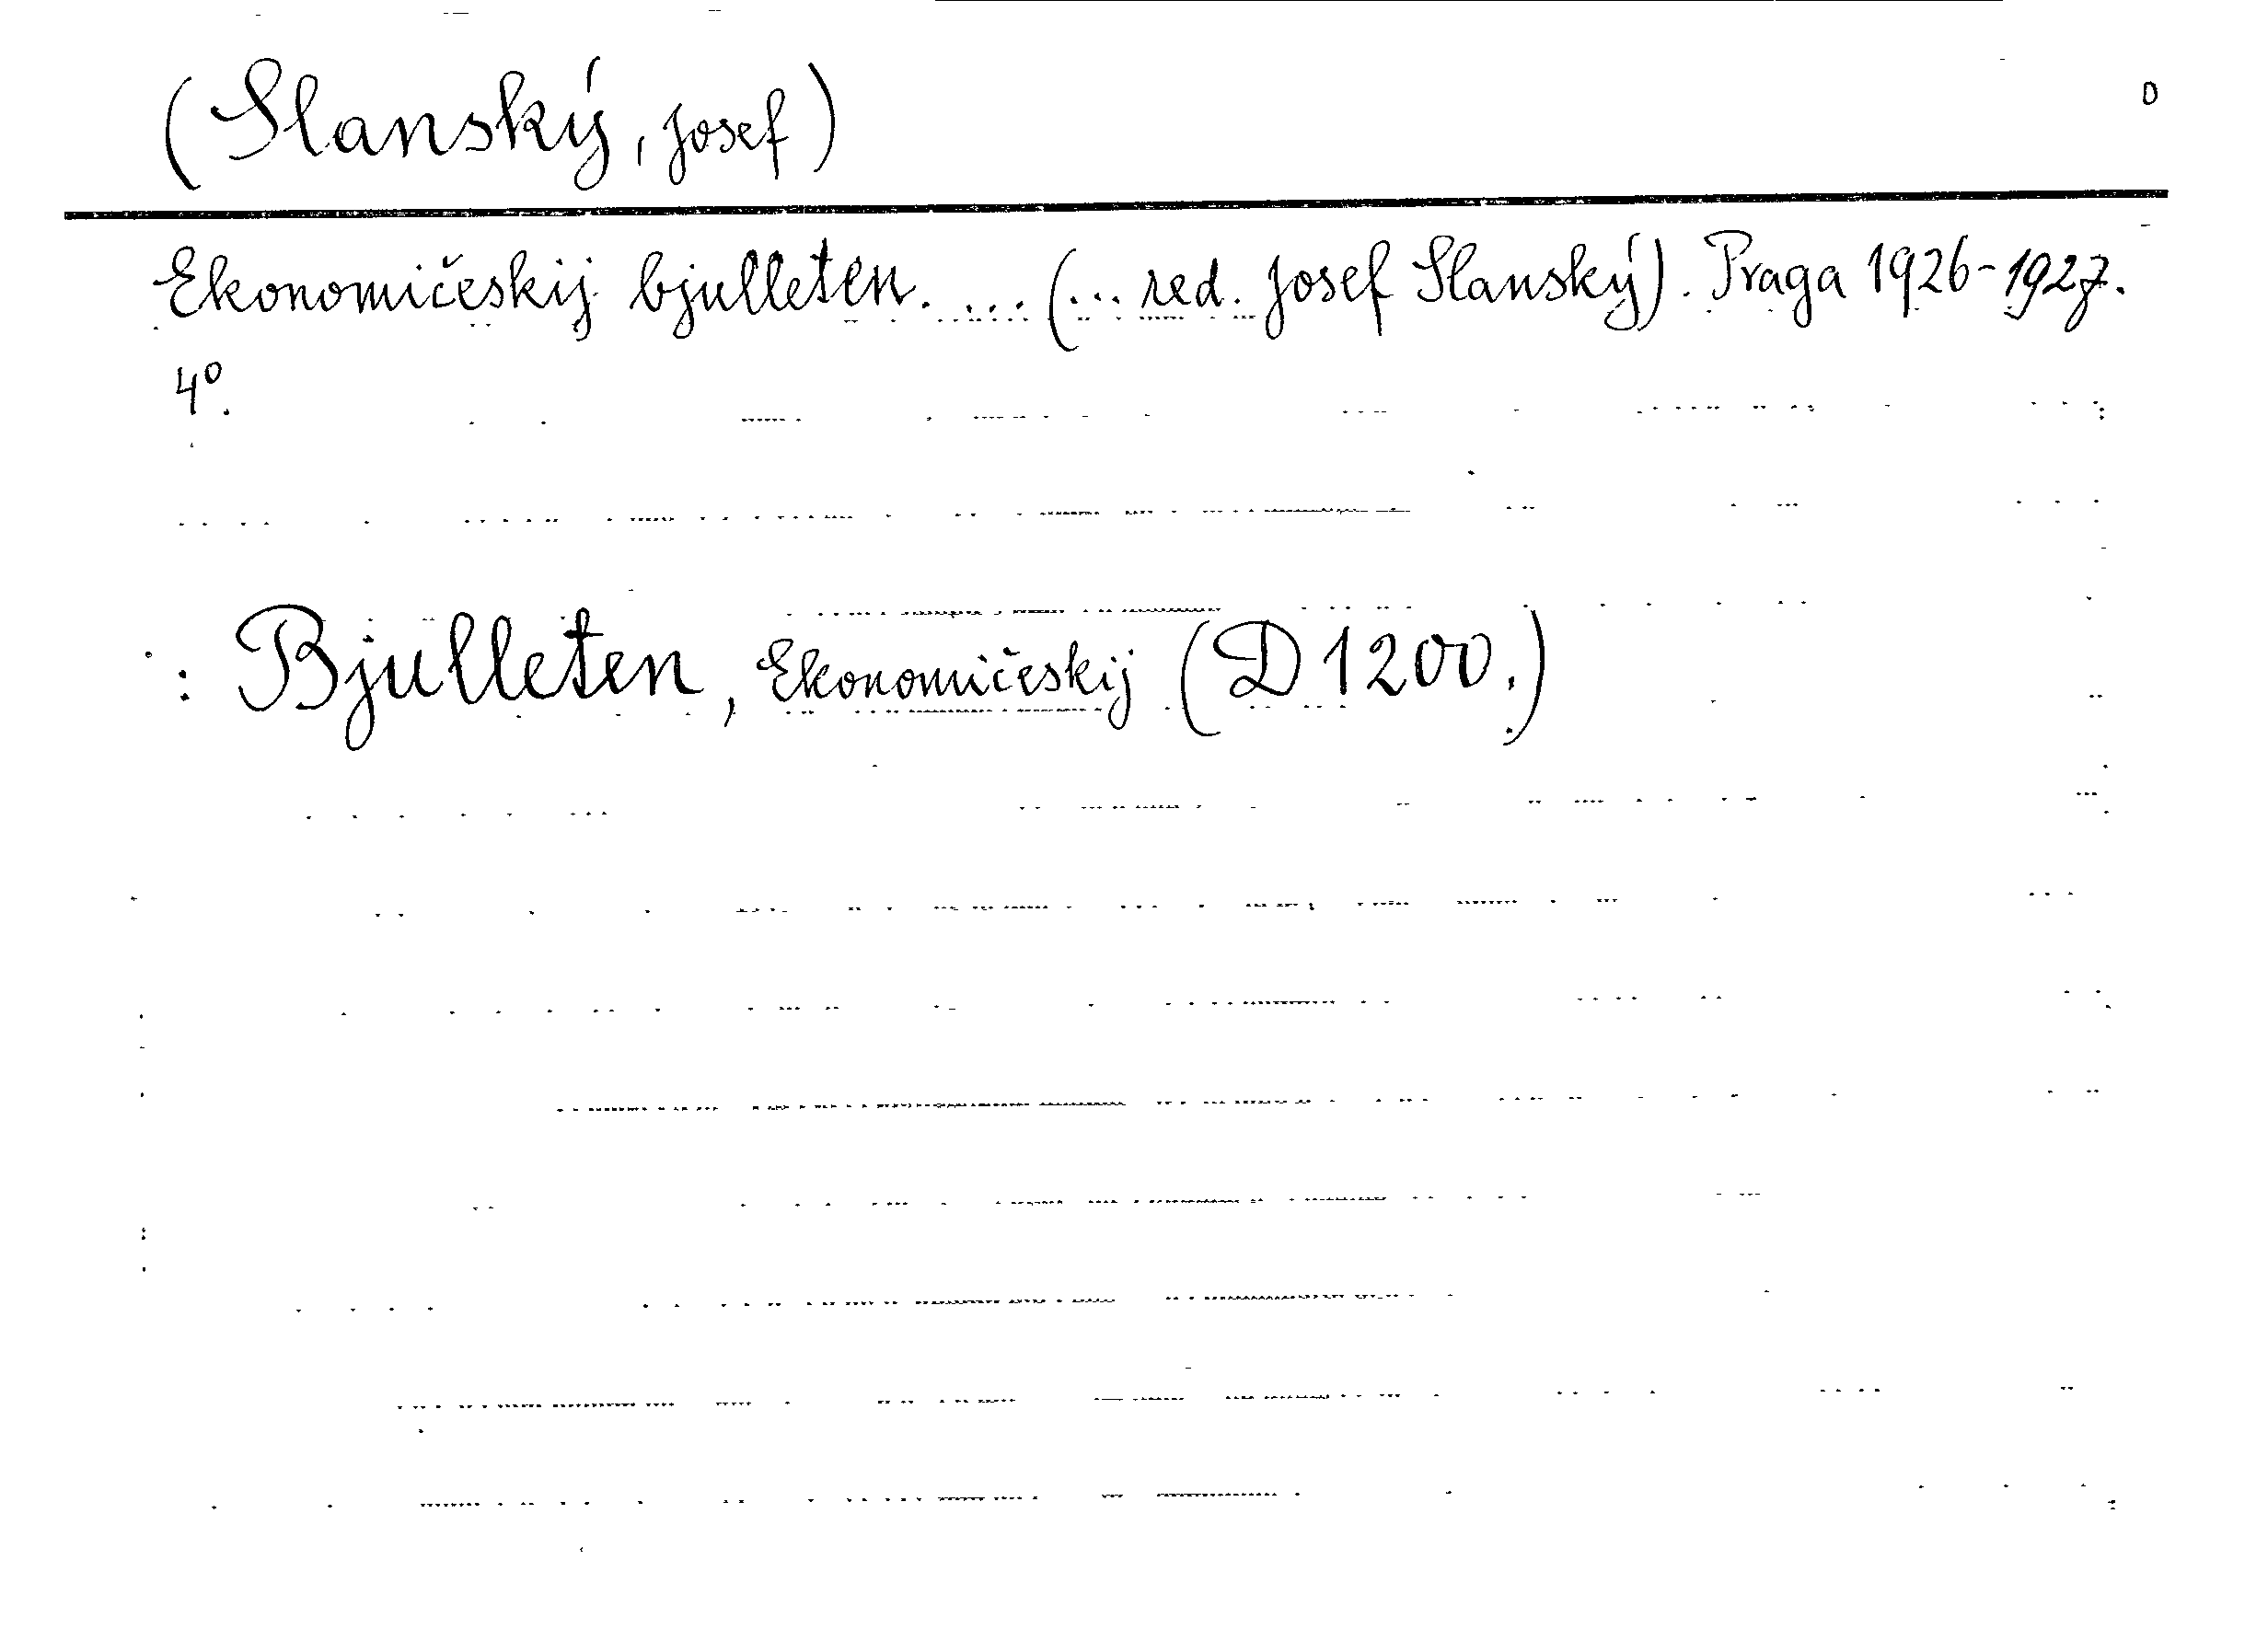 (Slanský, Josef)
D
Ekonomičeskij bjulleten. ... (... red. Josef Slanský). Praga 1926-1927.
4°.
: Bjulleten, Ekonomičeskij (D 1200.)